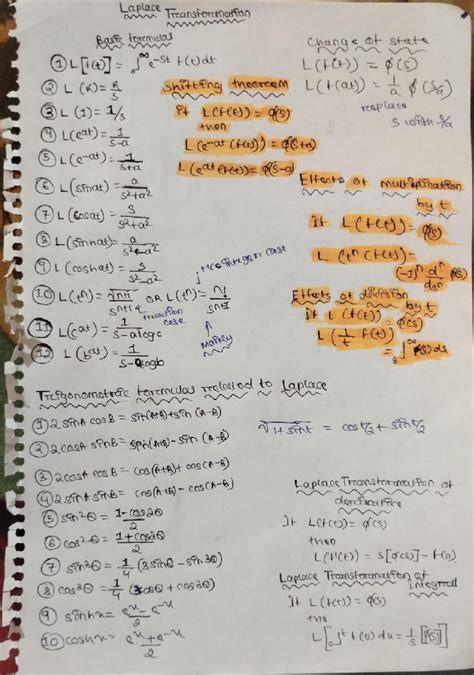 Laplace Transformation
Basic formulas
① L[f(t)] = ₀∫^∞ e^-st f(t)dt
② L(K) = K/s
③ L(1) = 1/s
④ L(e^at) = 1/(s-a)
⑤ L(e^-at) = 1/(s+a)
⑥ L(sinat) = a/(s²+a²)
⑦ L(cosat) = s/(s²+a²)
⑧ L(sinhat) = a/(s²-a²)
⑨ L(coshat) = s/(s²-a²)
⑩ L(t^n) = √(n+1)/s^(n+1) OR L(t^n) = n!/s^(n+1)
fraction case
+ve integer case
Mainly
⑪ L(c^at) = 1/(s-alogc)
⑫ L(b^at) = 1/(s-alogb)
Shifting theorem
if L(f(t)) = φ(s)
then
L(e^-at f(t)) = φ(s+a)
L(e^at f(t)) = φ(s-a)
Change of state
L(f(t)) = φ(s)
L(f(at)) = 1/a φ(s/a)
replace
s with s/a
Effects of multiplication
by t
if L(f(t)) = φ(s)
L(t^n f(t)) =
(-1)^n d^n/ds^n
Effects of division
by t
if L(f(t)) = φ(s)
L(1/t f(t)) = ₛ∫^∞ φ(s) ds
Trigonometric formulas related to Laplace
① 2 sinA cosB = sin(A+B)+sin(A-B)
② 2cosA sinB = sin(A+B) - sin(A-B)
③ 2cosA cosB = cos(A+B)+cos(A-B)
④ 2 sinA sinB = cos(A-B) - cos(A+B)
⑤ sin²θ = (1-cos2θ)/2
⑥ cos²θ = (1+cos2θ)/2
⑦ sin³θ = 1/4 (3sinθ - sin3θ)
⑧ cos³θ = 1/4 (3cosθ + cos3θ)
⑨ sinhx = (e^x - e^-x)/2
⑩ coshx = (e^x + e^-x)/2
√(1+sint) = cos t/2 + sin t/2
Laplace Transformation of
derivative
If L(f(t)) = φ(s)
then
L(f'(t)) = s[φ(s)] - f(0)
Laplace Transformation of
integral
If L(f(t)) = φ(s)
the
L[₀∫^t f(u) du = 1/s [φ(s)]